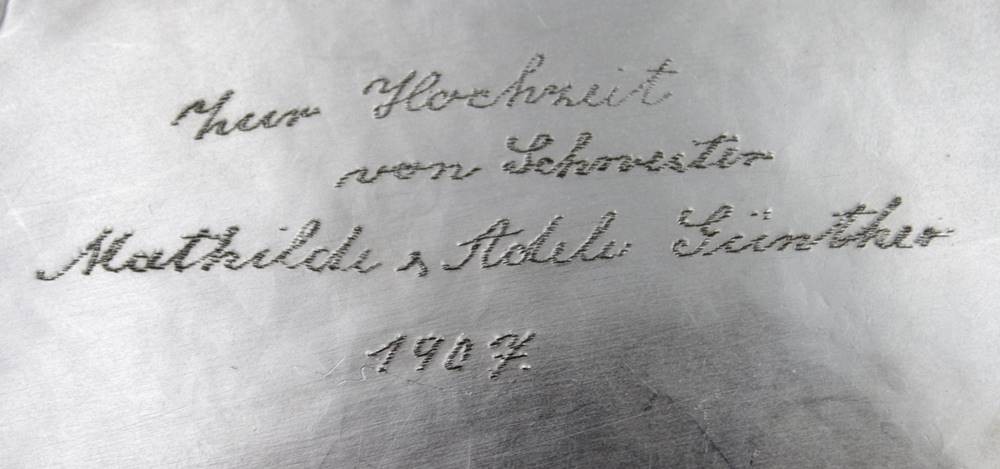 Zur Hochzeit
von Schwester
Mathilde & Adele Günther
1907.